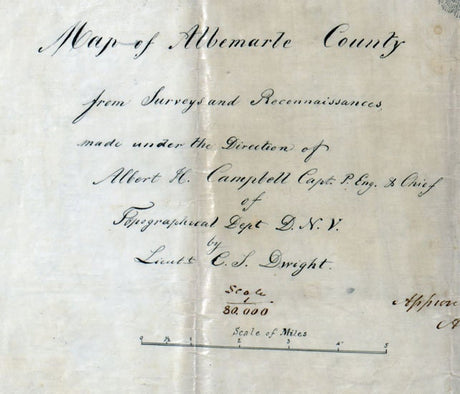 Map of Albemarle County
from Surveys and Reconnaissances
made under the Direction of
Albert H. Campbell Capt. P. Eng. & Chief
of
Topographical Dept D. N. V.
by
Lieut. C. S. Dwight.
Scale
1
80.000
Scale of Miles
0 ½ 1 2 3 4 5